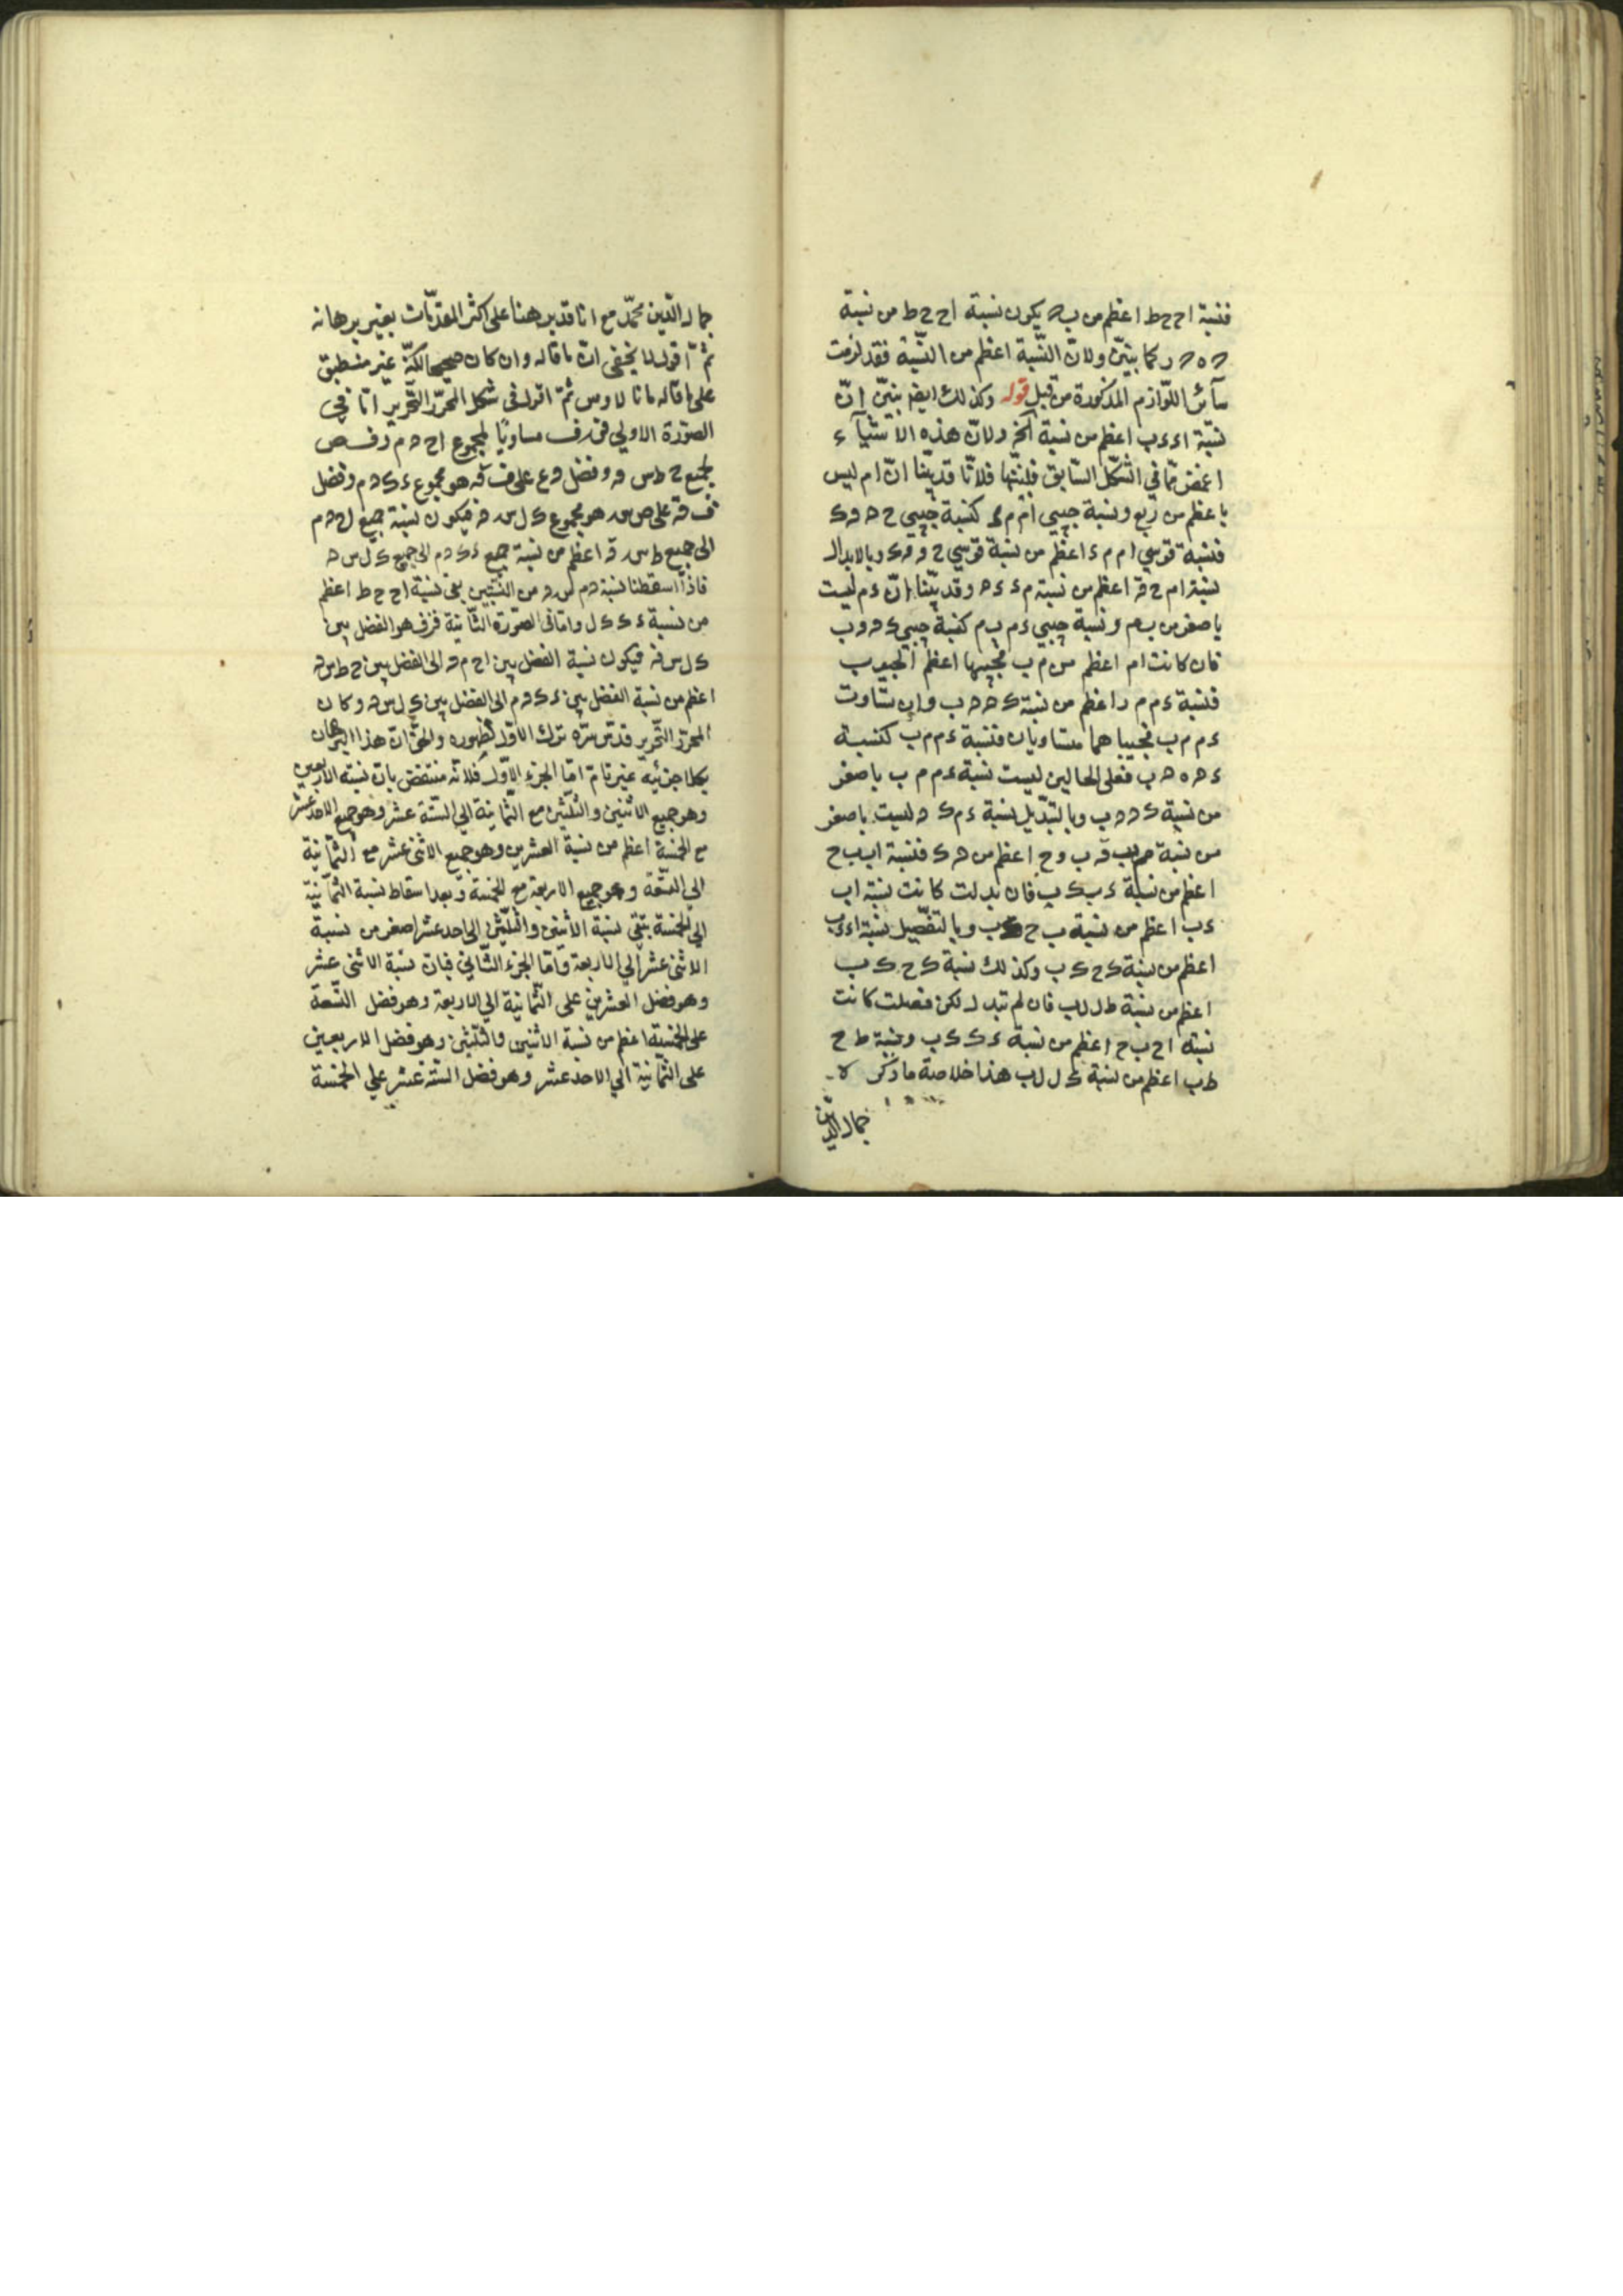 فنسبة ا ح ح ط اعظم من ب ه يكون نسبة ا ح ح ط من نسبة
ه ه ر كما بيّن ولانّ النّسبة اعظم من النّسبة فقد لزمت
سآئر اللّوازم المذكورة من قبل قوله وكذلك ايضا بيّن انّ
نسبة ا ء ء ب اعظم من نسبة آخر ولانّ هذه الاشيآء
اغمض ممّا في الشّكل السّابق فلنبيّنها فلانّا قد بيّنا انّ ا م ليس
باعظم من ربع ونسبة جيبي ا م م ء كنسبة جيبي ح ه ه ك
فنسبة قوسي ا م م ء اعظم من نسبة قوسي ح ه ه ك وبالابدال
نسبة ا م ح ه اعظم من نسبة م ء ك ه وقد بيّنا انّ ء م ليست
باصغر من ب م ونسبة جيبي ء م ب م كنسبة جيبي ك ه ه ب
فان كانت ا م اعظم من م ب فجيبها اعظم الجيوب
فنسبة ء م م ب اعظم من نسبة ك ه ه ب وان تساوت
ء م م ب فجيباهما متساويان فنسبة ء م م ب كنسبة
ك ه ه ب فعلى الحالين ليست نسبة ء م م ب باصغر
من نسبة ك ه ه ب وبالتبديل نسبة ء م ك ه ليست باصغر
من نسبة م ب ه ب و ح اعظم من ه ك فنسبة ا ب ب ح
اعظم من نسبة ء ب ك ب فان بدلت كانت نسبة ا ب
ء ب اعظم من نسبة ب ح ك ب وبالتفصيل نسبة ا ء ء ب
اعظم من نسبة ك ح ك ب وكذلك نسبة ك ح ك ب
اعظم من نسبة ط ل ل ب فان لم تبدل لكن فصلت كانت
نسبة ا ح ب ح اعظم من نسبة ء ك ك ب ونسبة ط ح
ط ب اعظم من نسبة ك ل ل ب هذا خلاصة ما ذكر
جمال الدّين
جمال الدّين محمّد مع انا قد برهنا على اكثر المقدّمات بغير برهانه
ثمّ اقول لا يخفى انّ ما قاله وان كان صحيحا لكنّه غير منطبق
على ما قاله مانالاوس ثمّ اقول في شكل المحرّر التّحرير امّا في
الصّورة الاولى ف ر ف مساويا لمجموع ا ح ه م و ف ص
لجميع ح ط س ه وفضل و ع على ف ق هو مجموع ء ك ه م وفضل
ف ق على ص هو مجموع ك ل س ه فيكون نسبة جميع ا ح ه م
الى جميع ط س ه اعظم من نسبة جميع ء ك ه م الى جميع ك ل س ه
فاذا اسقطنا نسبة ه م س ه من النّسبتين بقي نسبة ا ح ح ط اعظم
من نسبة ء ك ك ل وامّا في الصّورة الثّانية ف ر ف هو الفضل بين
ك ل س ه فيكون نسبة الفضل بين ا ح م ه الى الفضل بين ح ط س ه
اعظم من نسبة الفضل بين ء ك ه م الى الفضل بين ك ل س ه وكان
المحرّر التّحرير قدّس سرّه ترك الاوّل لظهوره والحقّ ان هذا البرهان
بكلا جزئيه غير تامّ امّا الجزء الاوّل فلانّه منتقض بانّ نسبة الاربعين
وهو جميع الاثنين والثّلثين مع الثّمانية الى السّتة عشر وهو جميع الاحد عشر
مع الخمسة اعظم من نسبة العشرين وهو جميع الاثنى عشر مع الثّمانية
الى التّسعة وهو جميع الاربعة مع الخمسة وبعد اسقاط نسبة الثّمانية
الى الخمسة بقي نسبة الاثنين والثّلثين الى احد عشر اصغر من نسبة
الاثنى عشر الى الاربعة وامّا الجزء الثّاني فبانّ نسبة الاثنى عشر
وهو فضل العشرين على الثّمانية الى الاربعة وهو فضل التّسعة
على الخمسة اعظم من نسبة الاثنين والثّلثين وهو فضل الاربعين
على الثّمانية الى الاحد عشر وهو فضل السّتة عشر على الخمسة